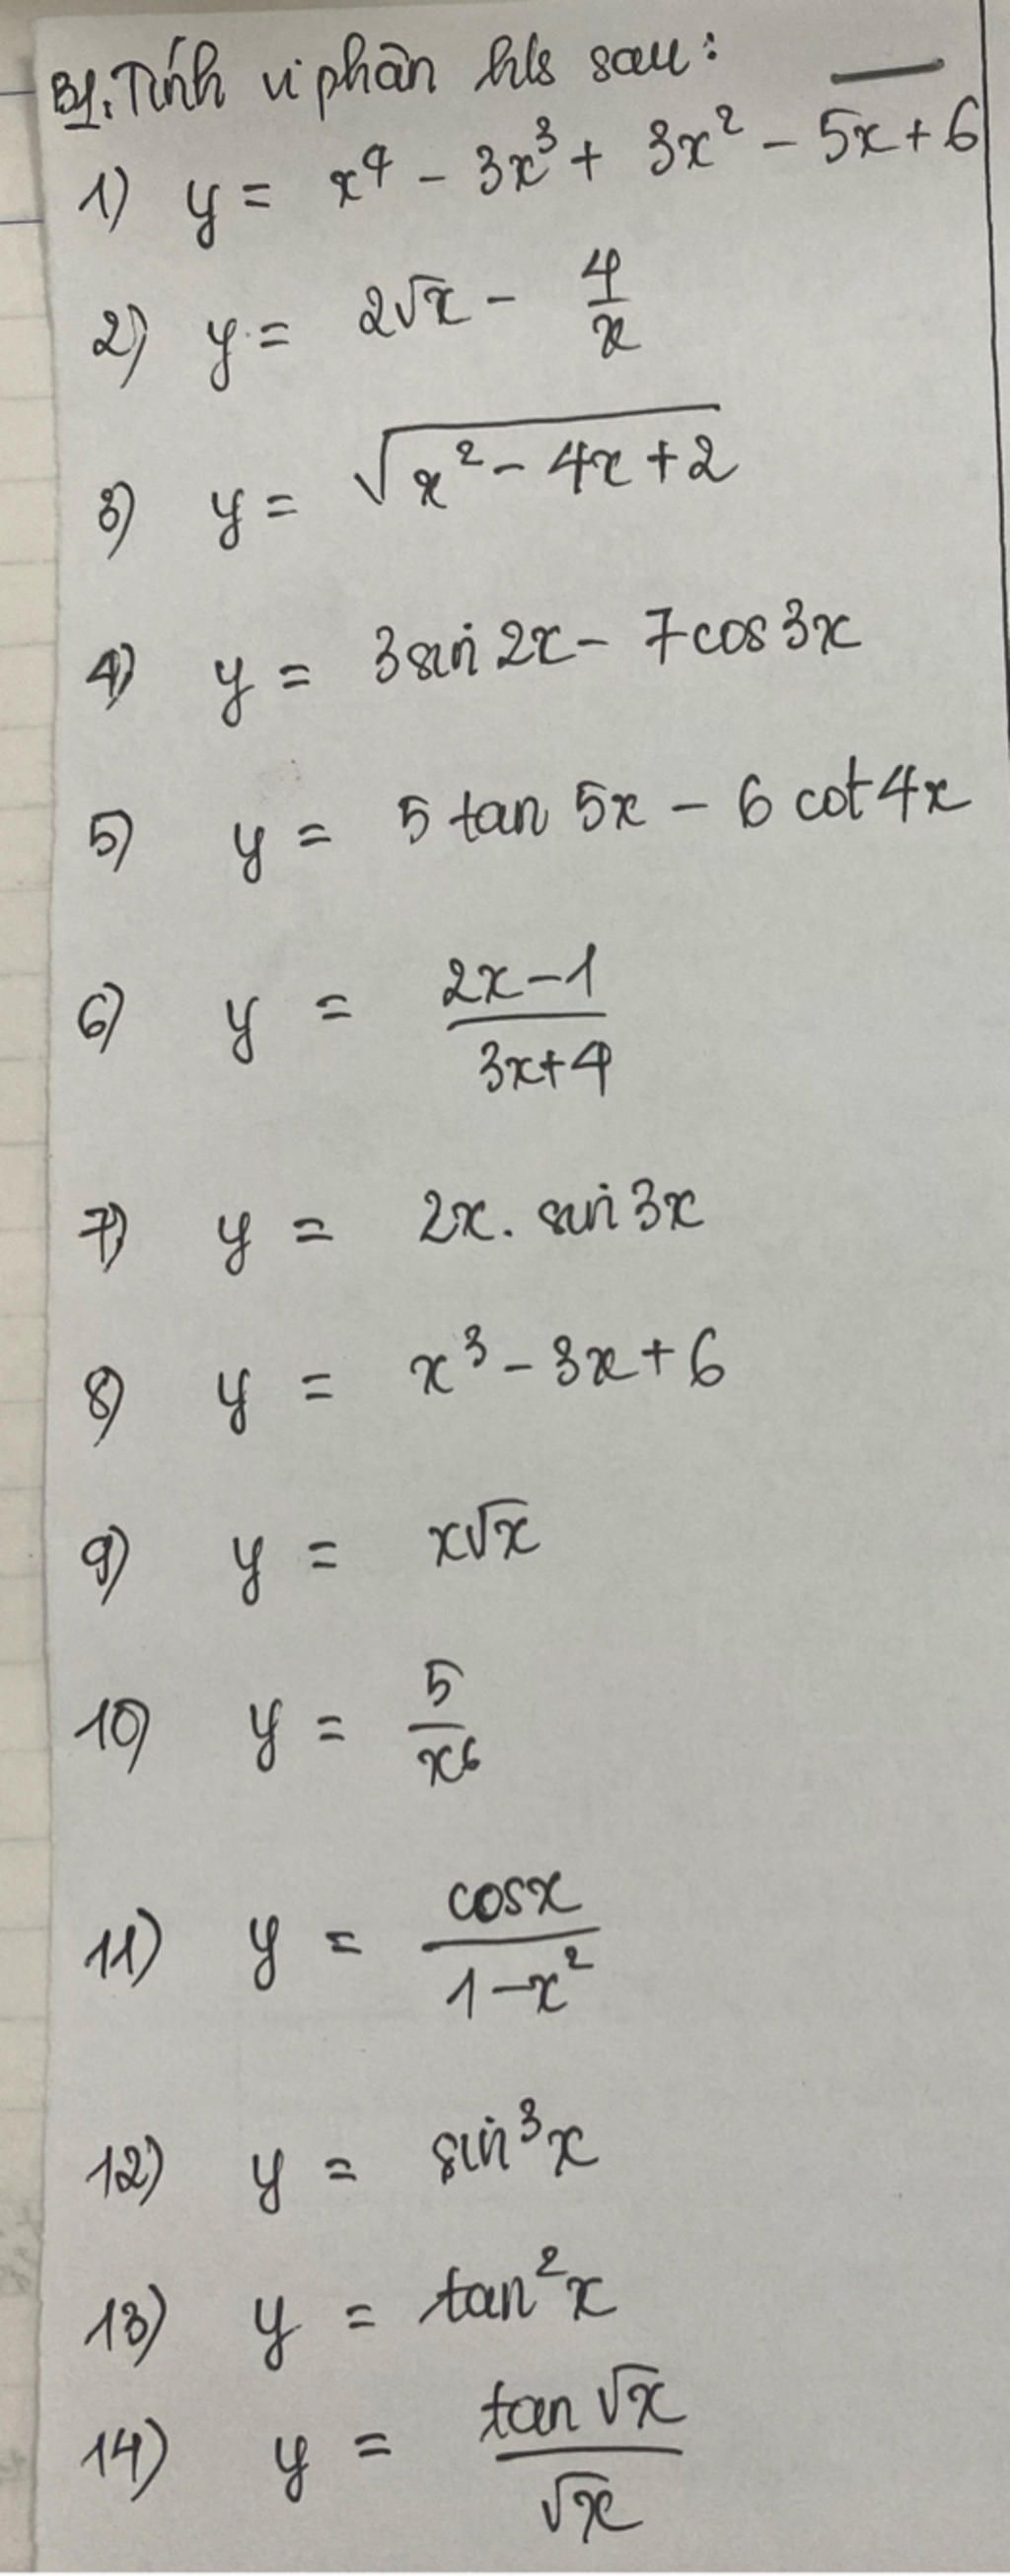 B1. Tính vi phân h/s sau:
1) y = x⁴ - 3x³ + 3x² - 5x + 6
2) y = 2√x - 4/x
3) y = √(x² - 4x + 2)
4) y = 3 sin 2x - 7 cos 3x
5) y = 5 tan 5x - 6 cot 4x
6) y = (2x - 1)/(3x + 4)
7) y = 2x. sin 3x
8) y = x³ - 3x + 6
9) y = x√x
10) y = 5/x⁶
11) y = cosx/(1 - x²)
12) y = sin³x
13) y = tan²x
14) y = tan √x/√x